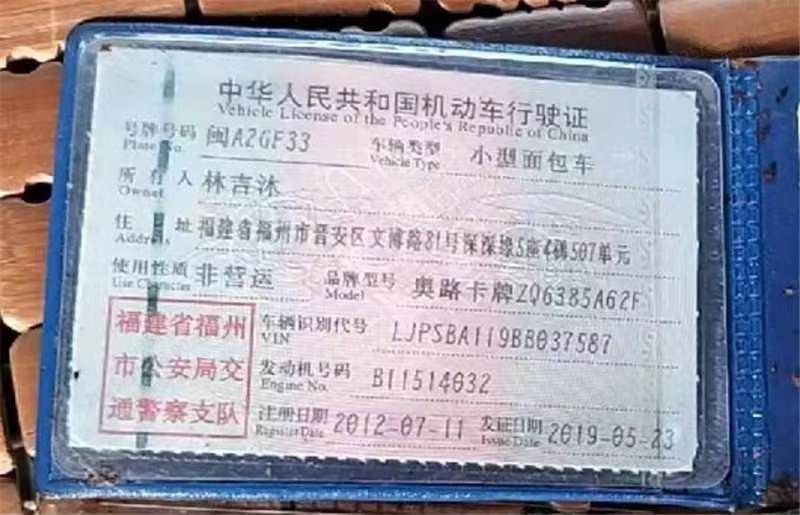 中华人民共和国机动车行驶证
Vehicle License of the People's Republic of China
号牌号码 闽A2GF33 车辆类型 小型面包车
Plate No. Vehicle Type
所有人 林吉沐
Owner
住址 福建省福州市晋安区文博路81号深深缘5座4碼507单元
Address
使用性质 非营运 品牌型号 奥路卡牌ZQ6385A62F
Use Character Model
福建省福州
市公安局交
通警察支队
车辆识别代号 LJPSBA119BB037587
VIN
发动机号码 B11514032
Engine No.
注册日期 2012-07-11 发证日期 2019-05-23
Register Date Issue Date